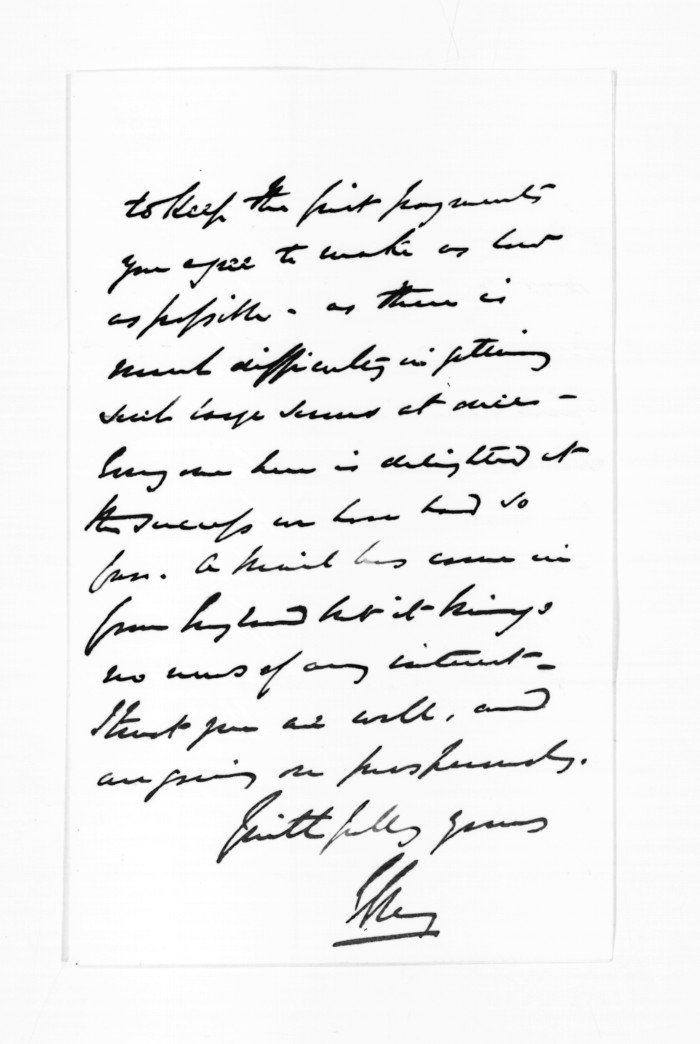 to keep the first payments
you agree to make as low
as possible - as there is
much difficulty in getting
such large sums at once -
Every one here is delighted at
the success we have had so
far. A Mail has come in
from England but it brings
no news of any interest -
I trust you are well, and
are going on prosperously.
Faithfully yours